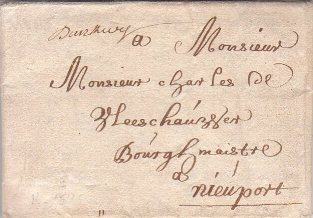 Dunkerq
a Monsieur
Monsieur charles de
Vleeschaüwer
Boürghmaistre
a nieüport